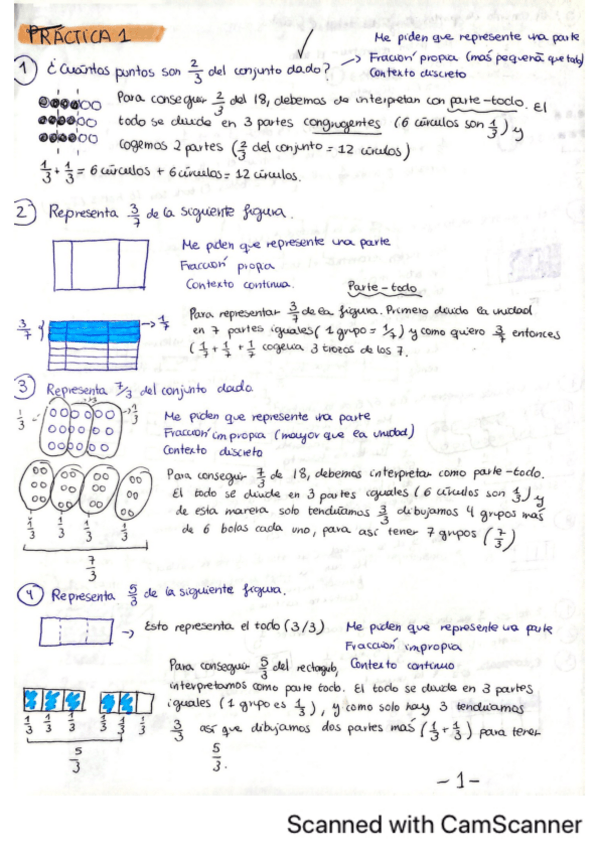 PRÁCTICA 1
Me piden que represente una parte
① ¿Cuántos puntos son 2/3 del conjunto dado? → Fracción propia (más pequeña que todo)
Contexto discreto
Para conseguir 2/3 del 18, debemos de interpretan con parte-todo. El
todo se divide en 3 partes congruentes (6 círculos son 1/3) y
cogemos 2 partes (2/3 del conjunto = 12 círculos)
1/3 + 1/3 = 6 círculos + 6 círculos = 12 círculos.
② Representa 3/7 de la siguiente figura.
Me piden que represente una parte
Fracción propia
Contexto continua.
Parte-todo
3/7
→ 1/7
Para representar 3/7 de la figura. Primero divido la unidad
en 7 partes iguales (1 grupo = 1/7) y como quiero 3/7 entonces
(1/7 + 1/7 + 1/7 cogería 3 trozos de los 7.
③ Representa 7/3 del conjunto dado
1/3
1/3
1/3
Me piden que represente una parte
Fracción impropia (mayor que la unidad)
Contexto discreto
Para conseguir 7/3 de 18, debemos interpretar como parte-todo.
El todo se divide en 3 partes iguales (6 círculos son 1/3) y
de esta manera solo tendríamos 3/3 dibujamos 4 grupos más
de 6 bolas cada uno, para así tener 7 grupos (7/3)
1/3 1/3 1/3 1/3
7/3
④ Representa 5/3 de la siguiente figura.
→ Esto representa el todo (3/3)
Me piden que represente una parte
Fracción impropia
Contexto continuo
Para conseguir 5/3 del rectángulo,
interpretamos como parte todo. El todo se divide en 3 partes
iguales (1 grupo es 1/3), y como solo hay 3 tendríamos
3/3 así que dibujamos dos partes más (1/3 + 1/3) para tener
5/3.
1/3 1/3 1/3 1/3 1/3 1/3
5/3
-1-
Scanned with CamScanner